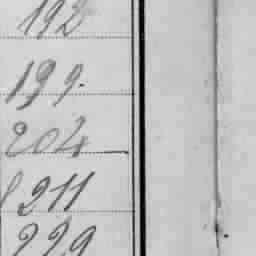 192
199.
204
211
229